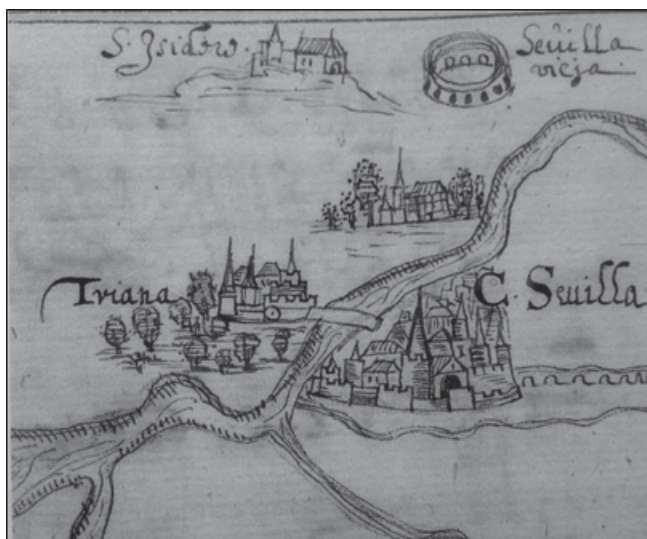 S. Isidro.
Sevilla
vieja.
Triana
C. Sevilla